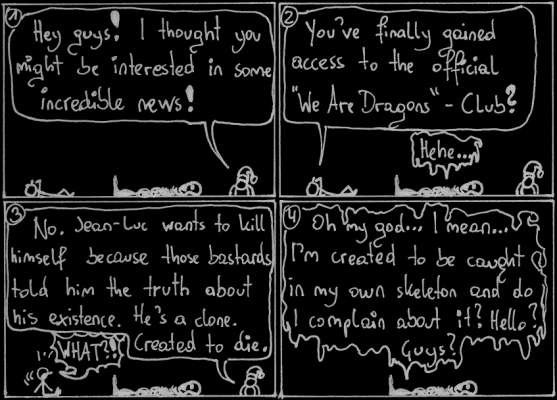 1
Hey guys! I thought you
might be interested in some
incredible news!
2
You've finally gained
access to the official
"We Are Dragons" - Club?
Hehe...
3
No. Jean-Luc wants to kill
himself because those bastards
told him the truth about
his existence. He's a clone.
Created to die.
WHAT?!
4
Oh my god... I mean...
I'm created to be caught
in my own skeleton and do
I complain about it? Hello?
Guys?